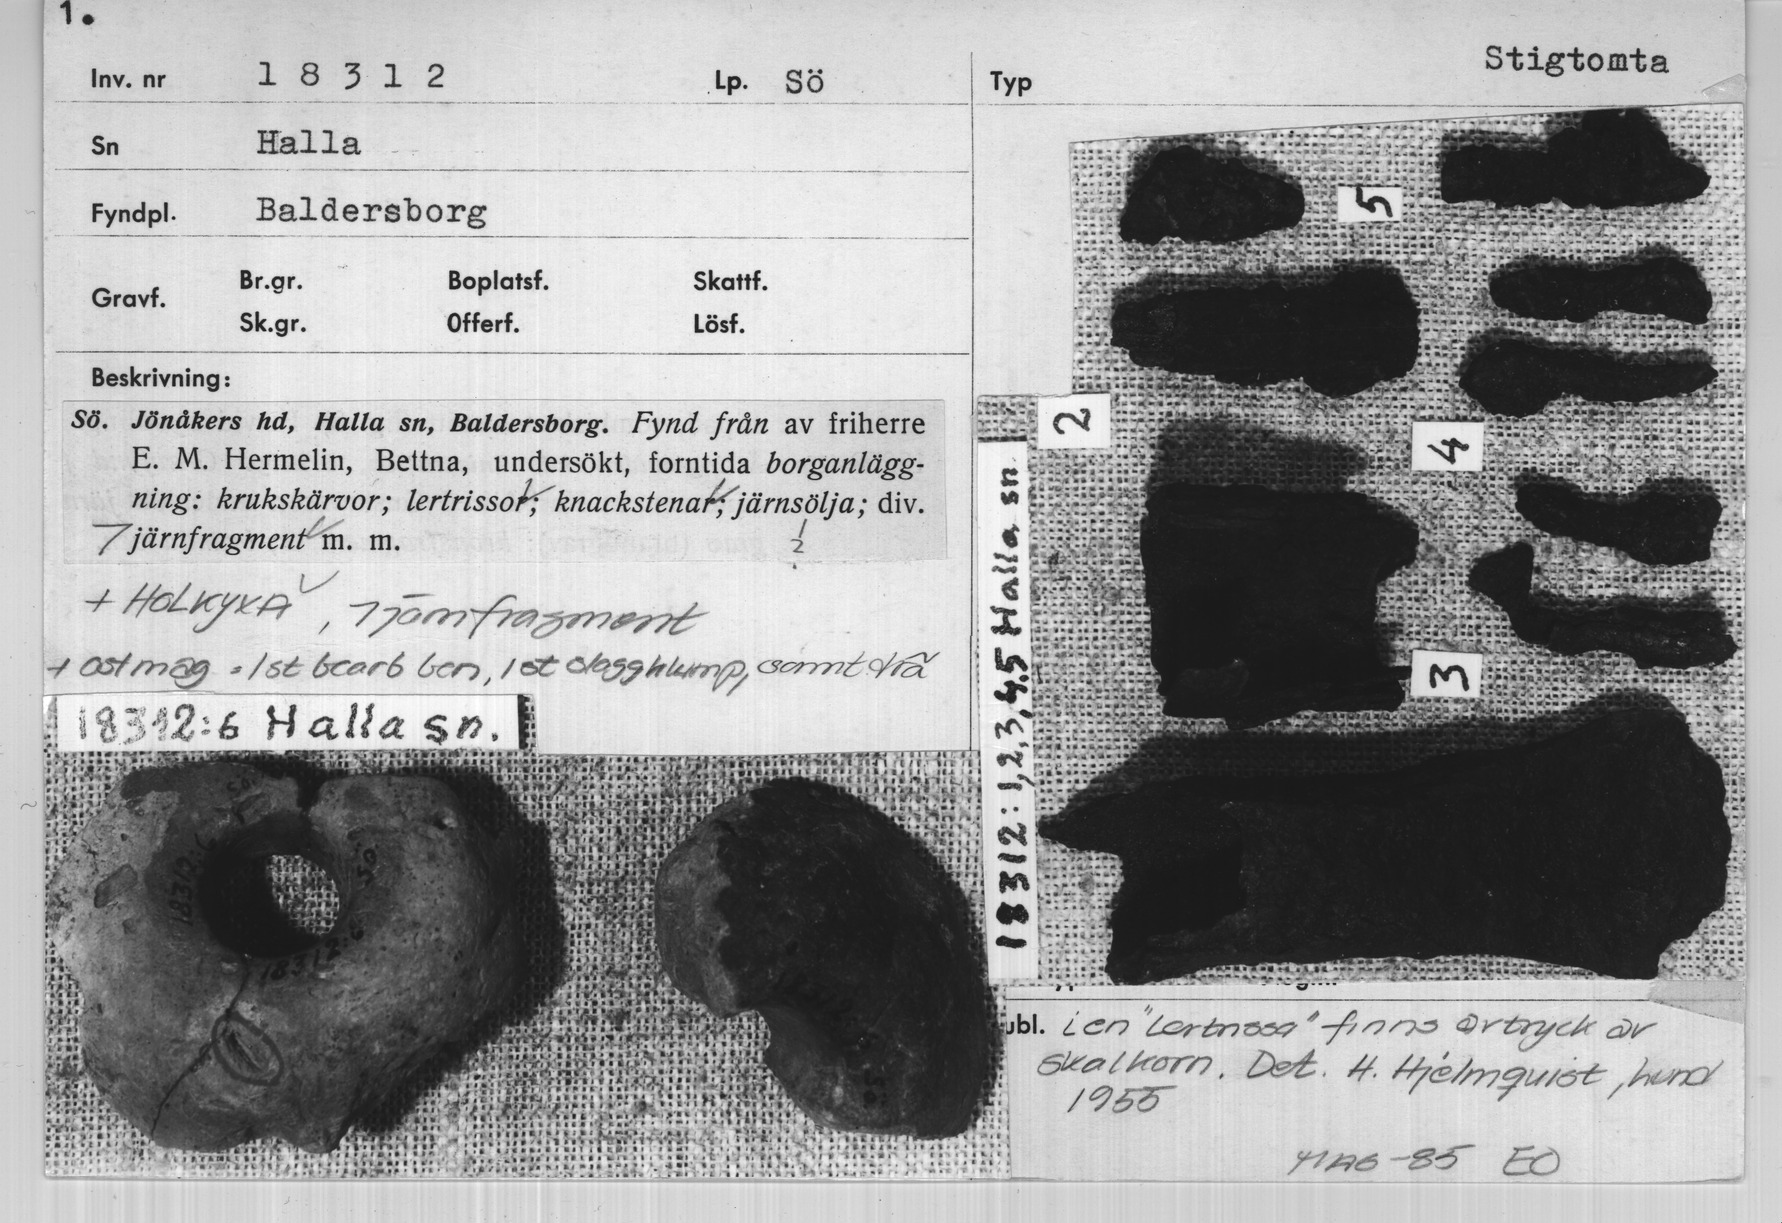 1.
Stigtomta
Inv. nr 18312 Lp. Sö Typ
Sn Halla
Fyndpl. Baldersborg
Gravf. Br.gr. Boplatsf. Skattf.
Sk.gr. Offerf. Lösf.
Beskrivning:
Sö. Jönåkers hd, Halla sn, Baldersborg. Fynd från av friherre
E. M. Hermelin, Bettna, undersökt, forntida borganlägg-
ning: krukskärvor; lertrissor; knackstenar; järnsölja; div.
7 järnfragment m. m.
?
+ HOLKYXA, 7 järnfragment
+ ost mag = 1st bearb ben, 1st slaggklump, samt trä
18312:6 Halla sn.
18312:6
18312:6
5
2
4
3
18312:1,2,3,4,5 Halla sn
ubl. i en "lertrissa" finns avtryck av
skalkorn. Det. H. Hjelmquist, Lund
1955
MAG -85 EO